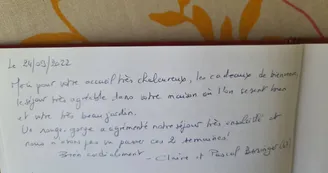 Le 24/09/2022
Merci pour votre accueil très chaleureux, les cadeaux de bienvenue,
le séjour très agréable dans votre maison où l'on se sent bien
et votre très beau jardin.
Un rouge-gorge a agrémenté notre séjour très ensoleillé et
nous n'avons pas vu passer ces 2 semaines!
Bien cordialement - Claire et Pascal